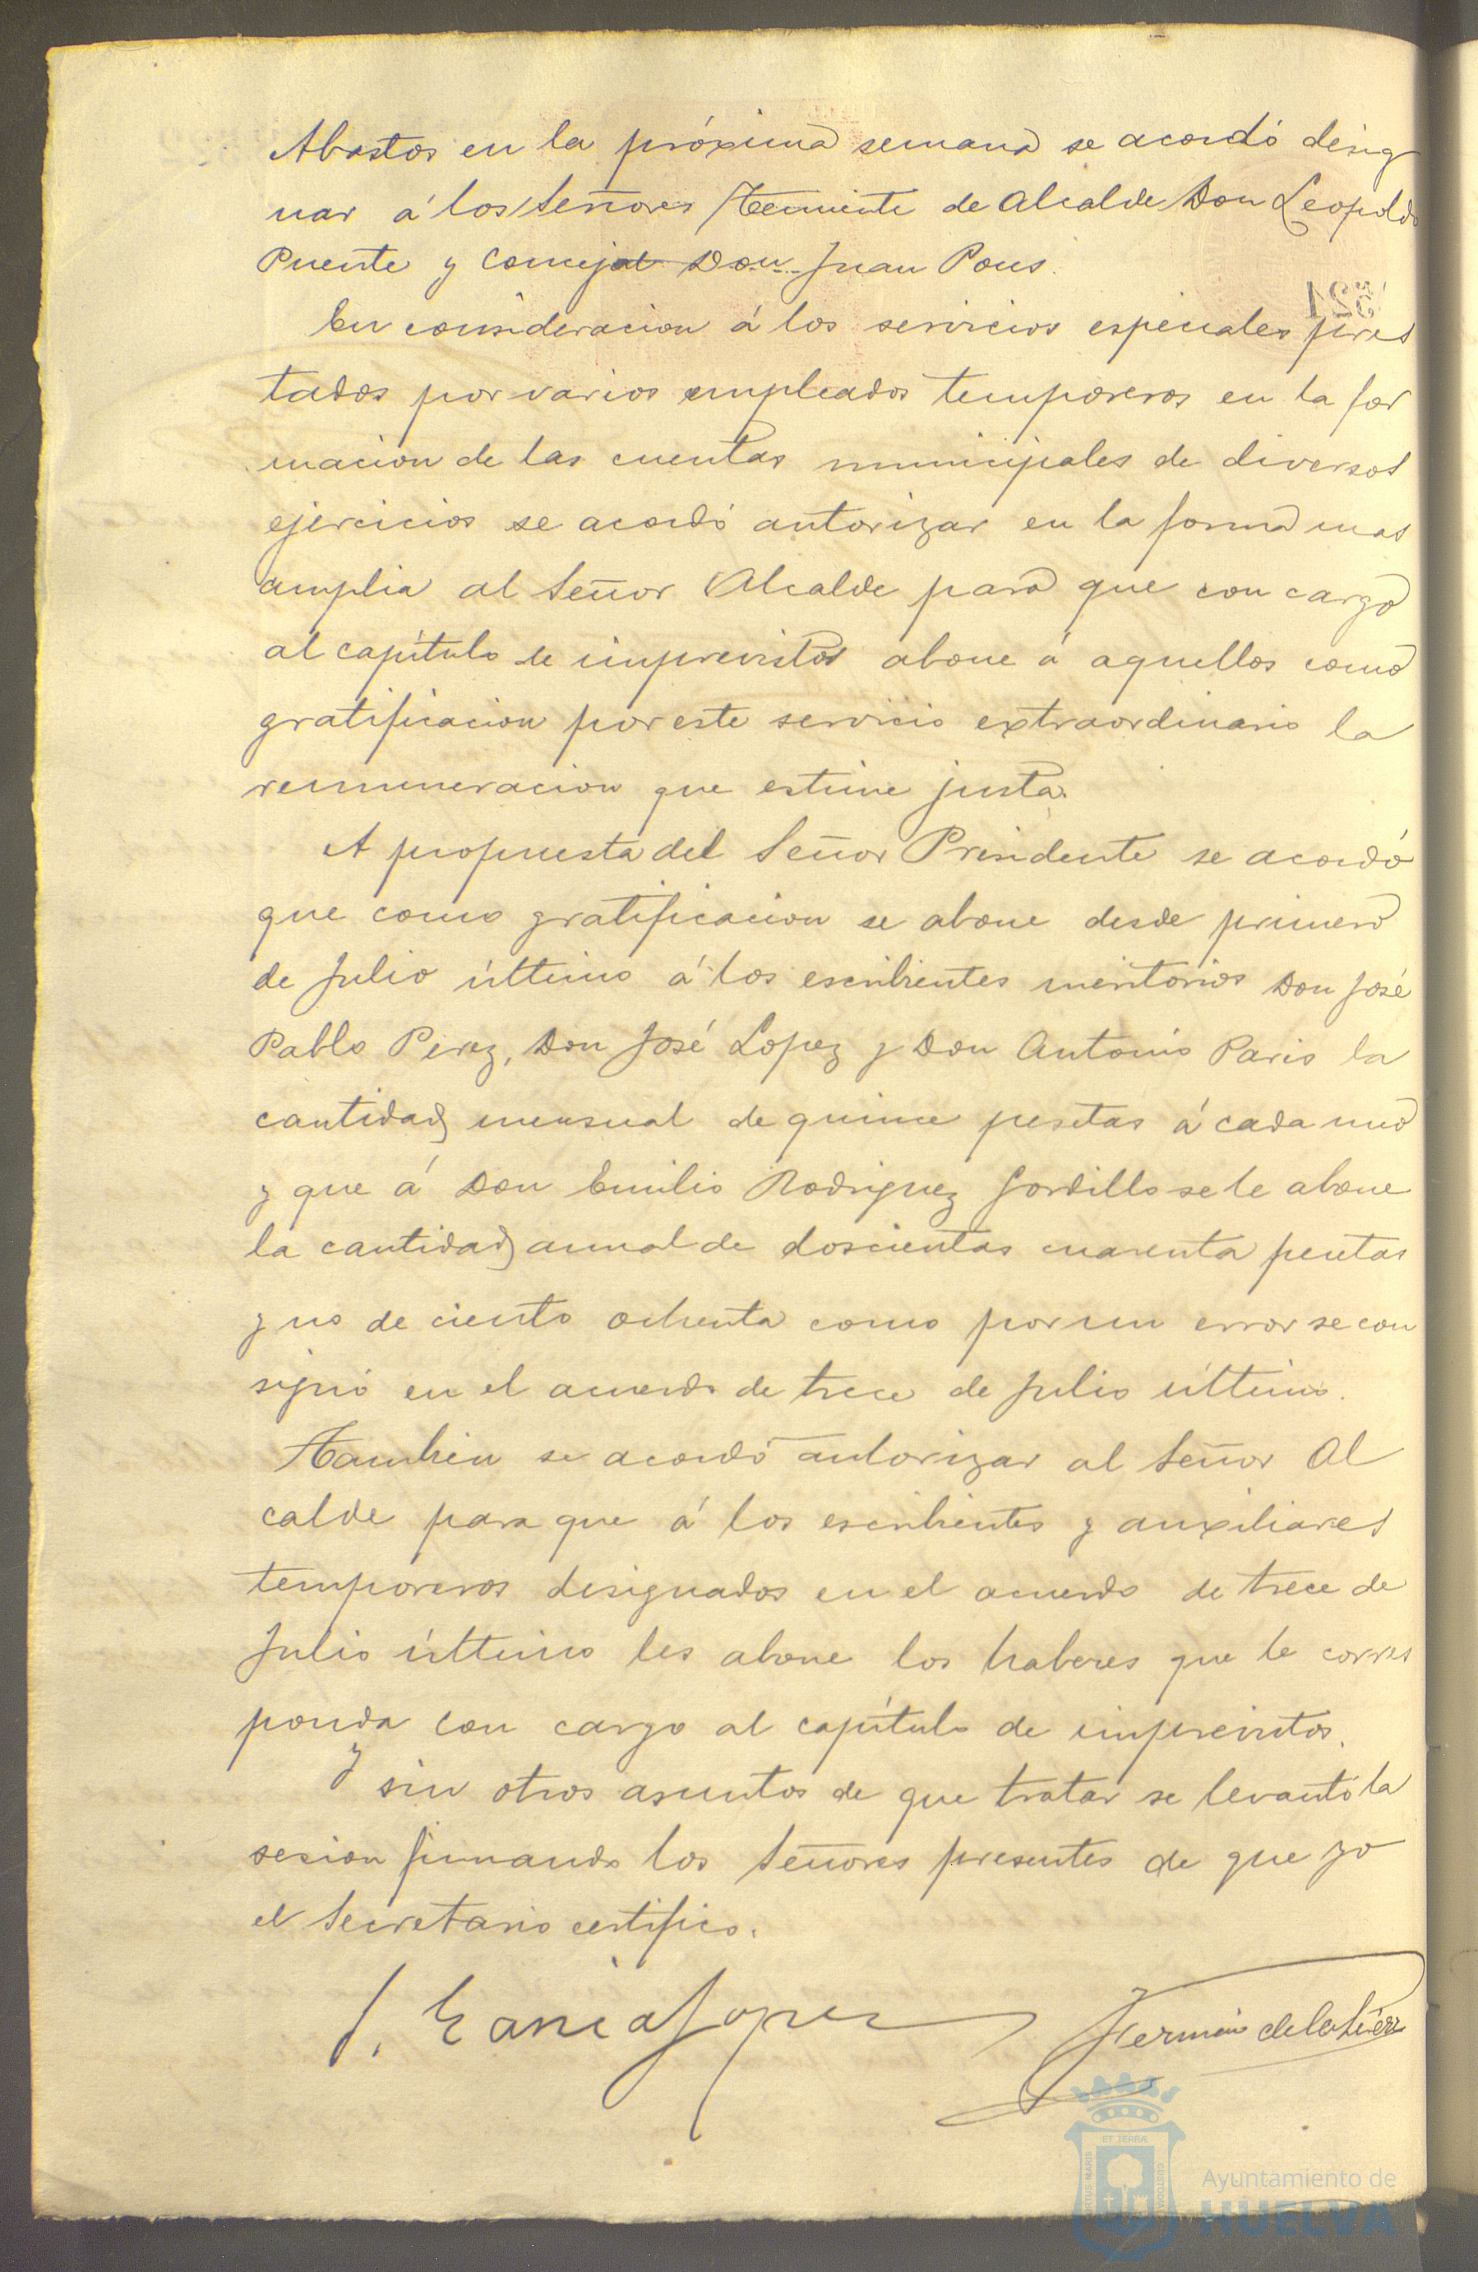 Abastos en la próxima semana se acordó desig
nar á los Señores Teniente de Alcalde Don Leopoldo
Puente y Concejal Don Juan Pons.
En consideracion á los servicios especiales pres
tados por varios empleados temporeros en la for
macion de las cuentas municipales de diversos
ejercicios se acordó autorizar en la forma mas
amplia al Señor Alcalde para que con cargo
al capítulo de imprevistos abone á aquellos como
gratificacion por este servicio extraordinario la
remuneracion que estime justa.
A propuesta del Señor Presidente se acordó
que como gratificacion se abone desde primero
de Julio último á los escribientes meritorios Don José
Pablo Perez, Don José Lopez y Don Antonio Paris la
cantidad mensual de quince pesetas á cada uno
y que á Don Emilio Rodriguez Gordillo se le abone
la cantidad anual de doscientas cuarenta pesetas
y no de ciento ochenta como por un error se con
signó en el acuerdo de trece de Julio último.
Tambien se acordó autorizar al Señor Al
calde para que á los escribientes y auxiliares
temporeros designados en el acuerdo de trece de
Julio último les abone los haberes que le corres
ponda con cargo al capítulo de imprevistos.
Y sin otros asuntos de que tratar se levantó la
sesion firmando los Señores presentes de que yo
el Secretario certifico.
J. García López
Fermín de la
521
Ayuntamiento de
HUELVA